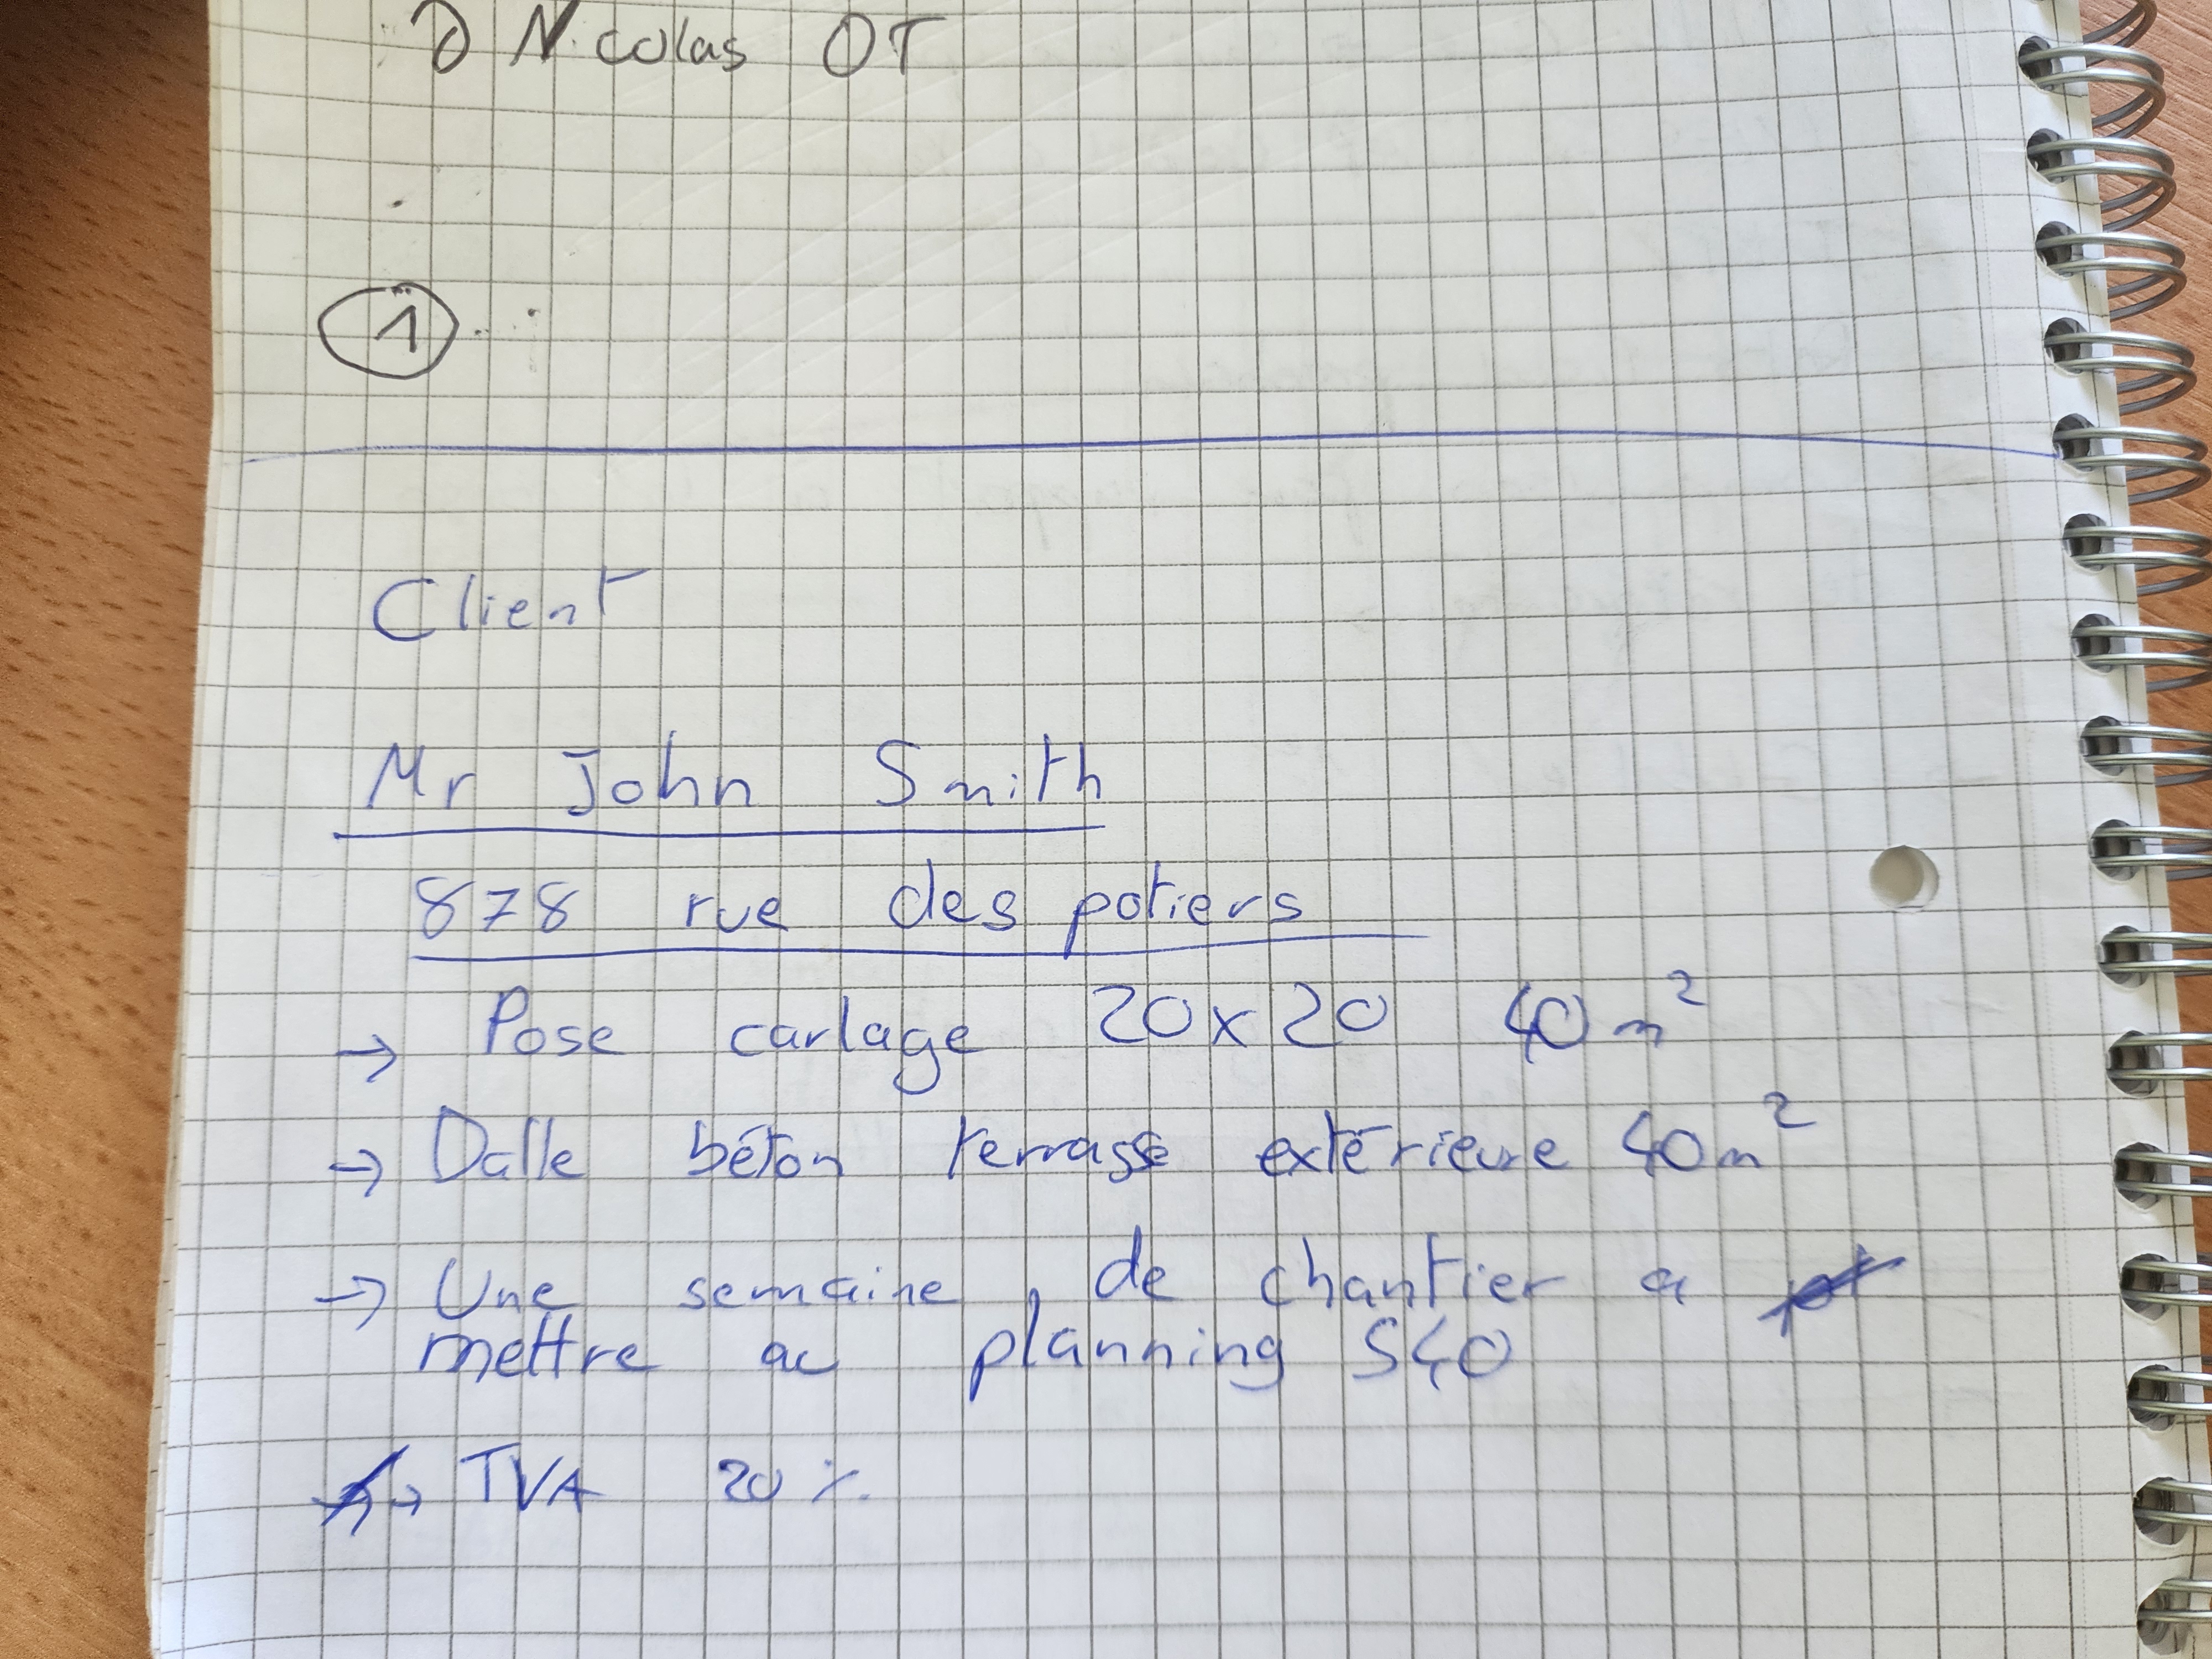 Nicolas OT
1
Client
Mr John Smith
878 rue des potiers
→ Pose carlage 20x20 40m²
→ Dalle béton terrasse extérieure 40m²
→ Une semaine de chantier a
mettre au planning S40
→ TVA 20%